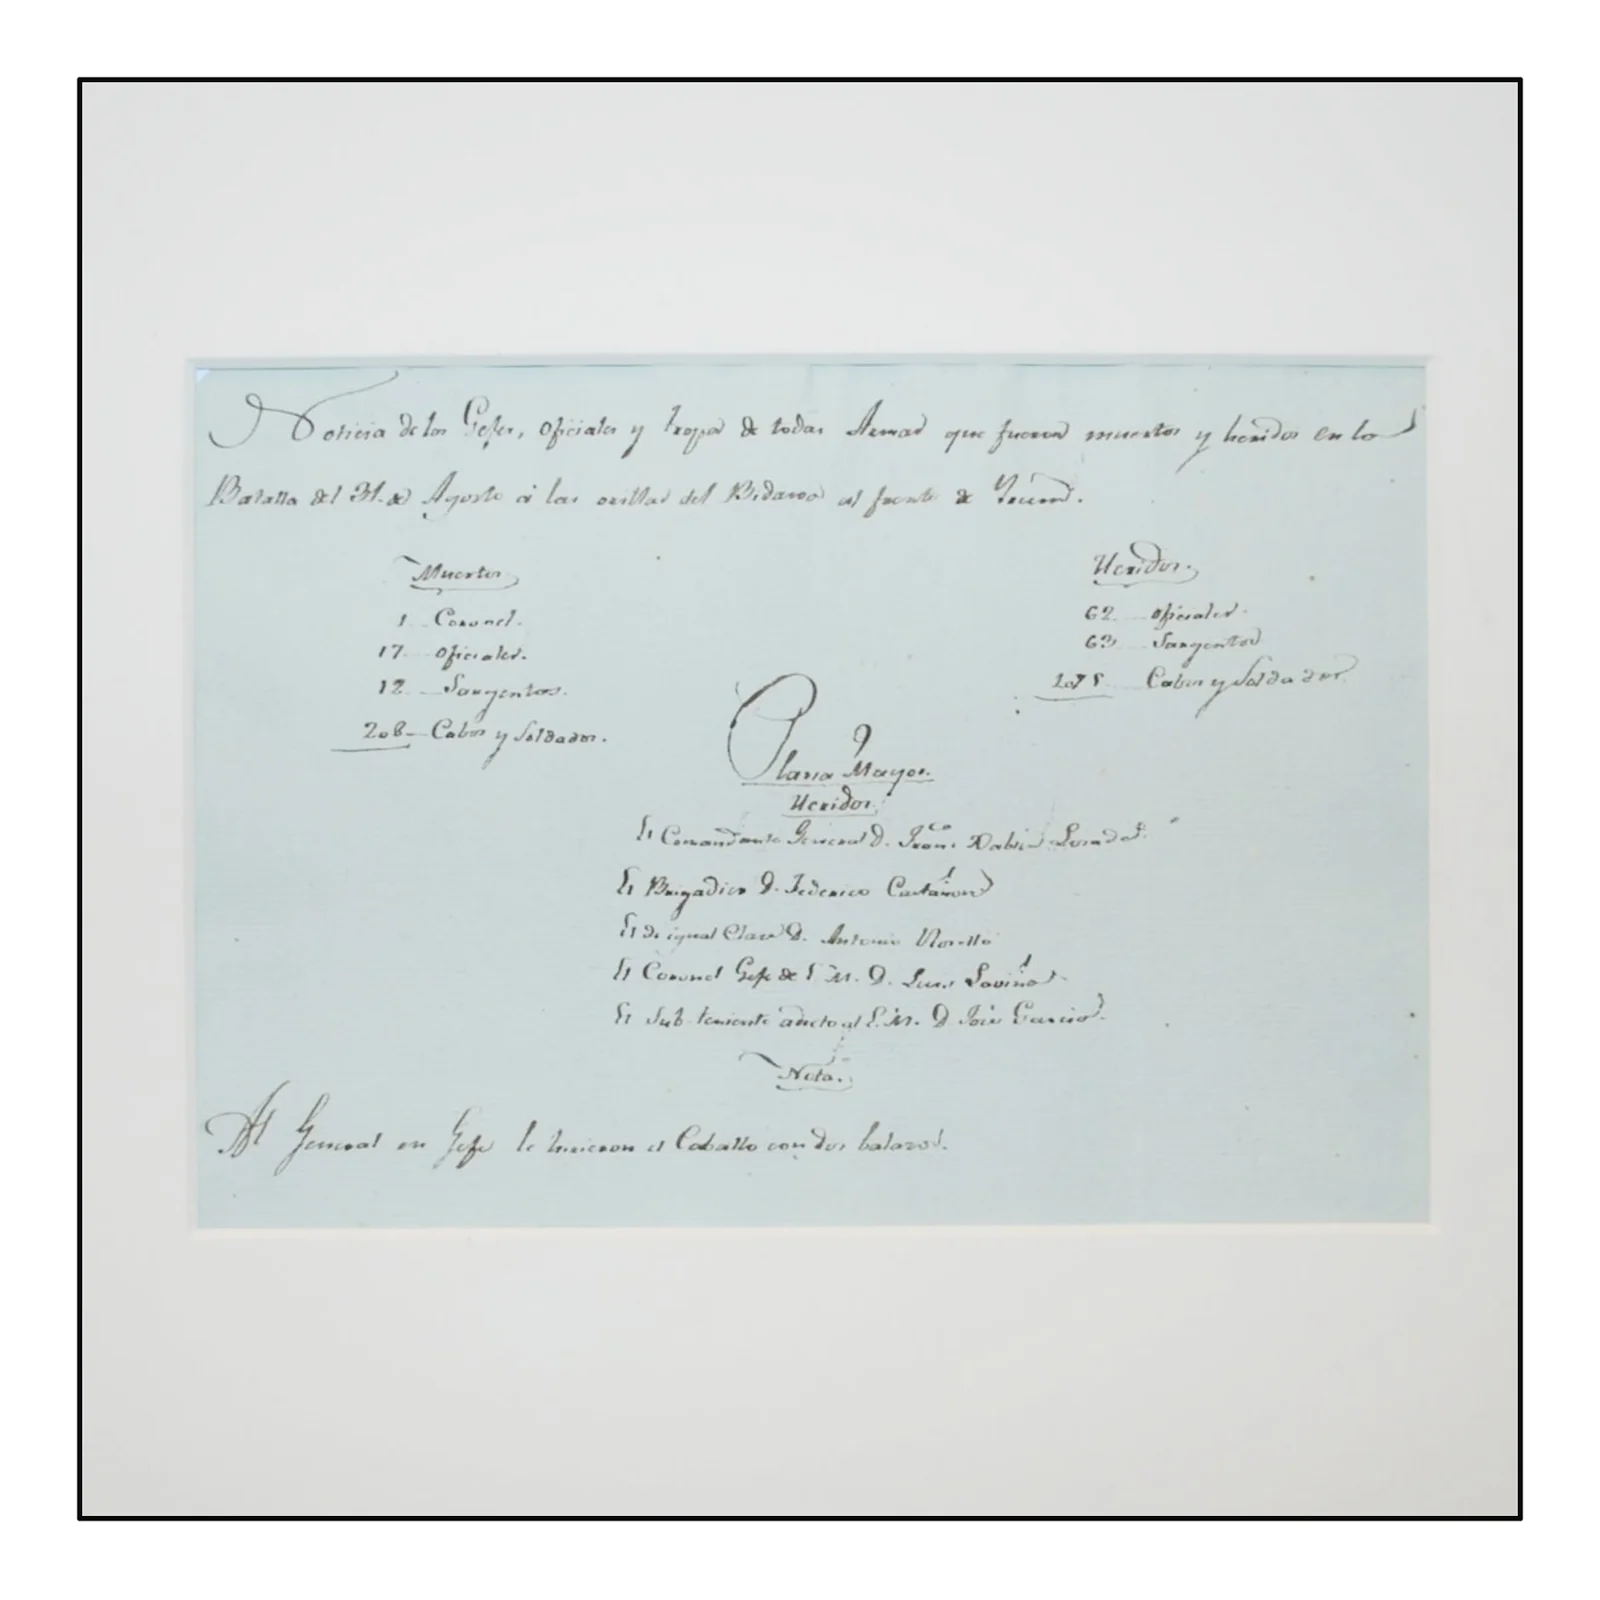 Noticia de los Gefes, Oficiales y tropa de todas Armas que fueron muertos y heridos en la
Batalla del 31. de Agosto á las orillas del Bidasoa al frente de
Muertos
1 Coronel.
17 Oficiales.
12 Sargentos.
208 Cabos y Soldados.
Heridos.
62 Oficiales.
63 Sargentos
Cabos y Soldados.
Plana Mayor.
Heridos.
El Comandante General D. Franco
El Brigadier D. Federico Castañon
El de igual Clase D. Antonio
El Coronel Gefe de E. M. D. Luis
El Sub-teniente adicto al E. M. D. José Garcia.
Nota.
Al General en Gefe le hirieron el Caballo con dos balazos.